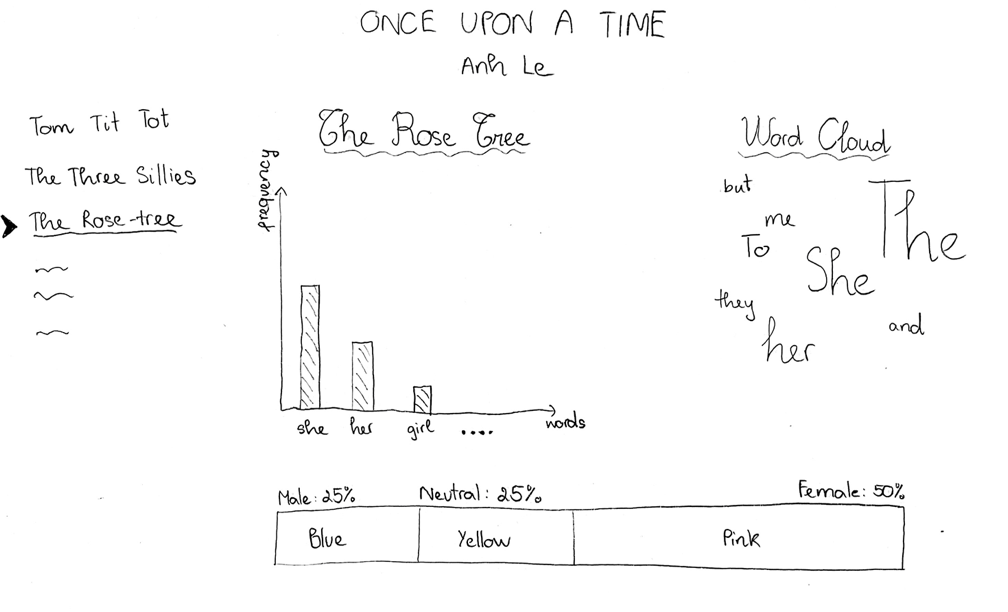 ONCE UPON A TIME
Anh Le
Tom Tit Tot
The Three Sillies
The Rose-tree
The Rose Tree
frequency
she her girl .... words
Word Cloud
but
me
The
To
She
they
her
and
Male: 25% Neutral: 25% Female: 50%
Blue Yellow Pink